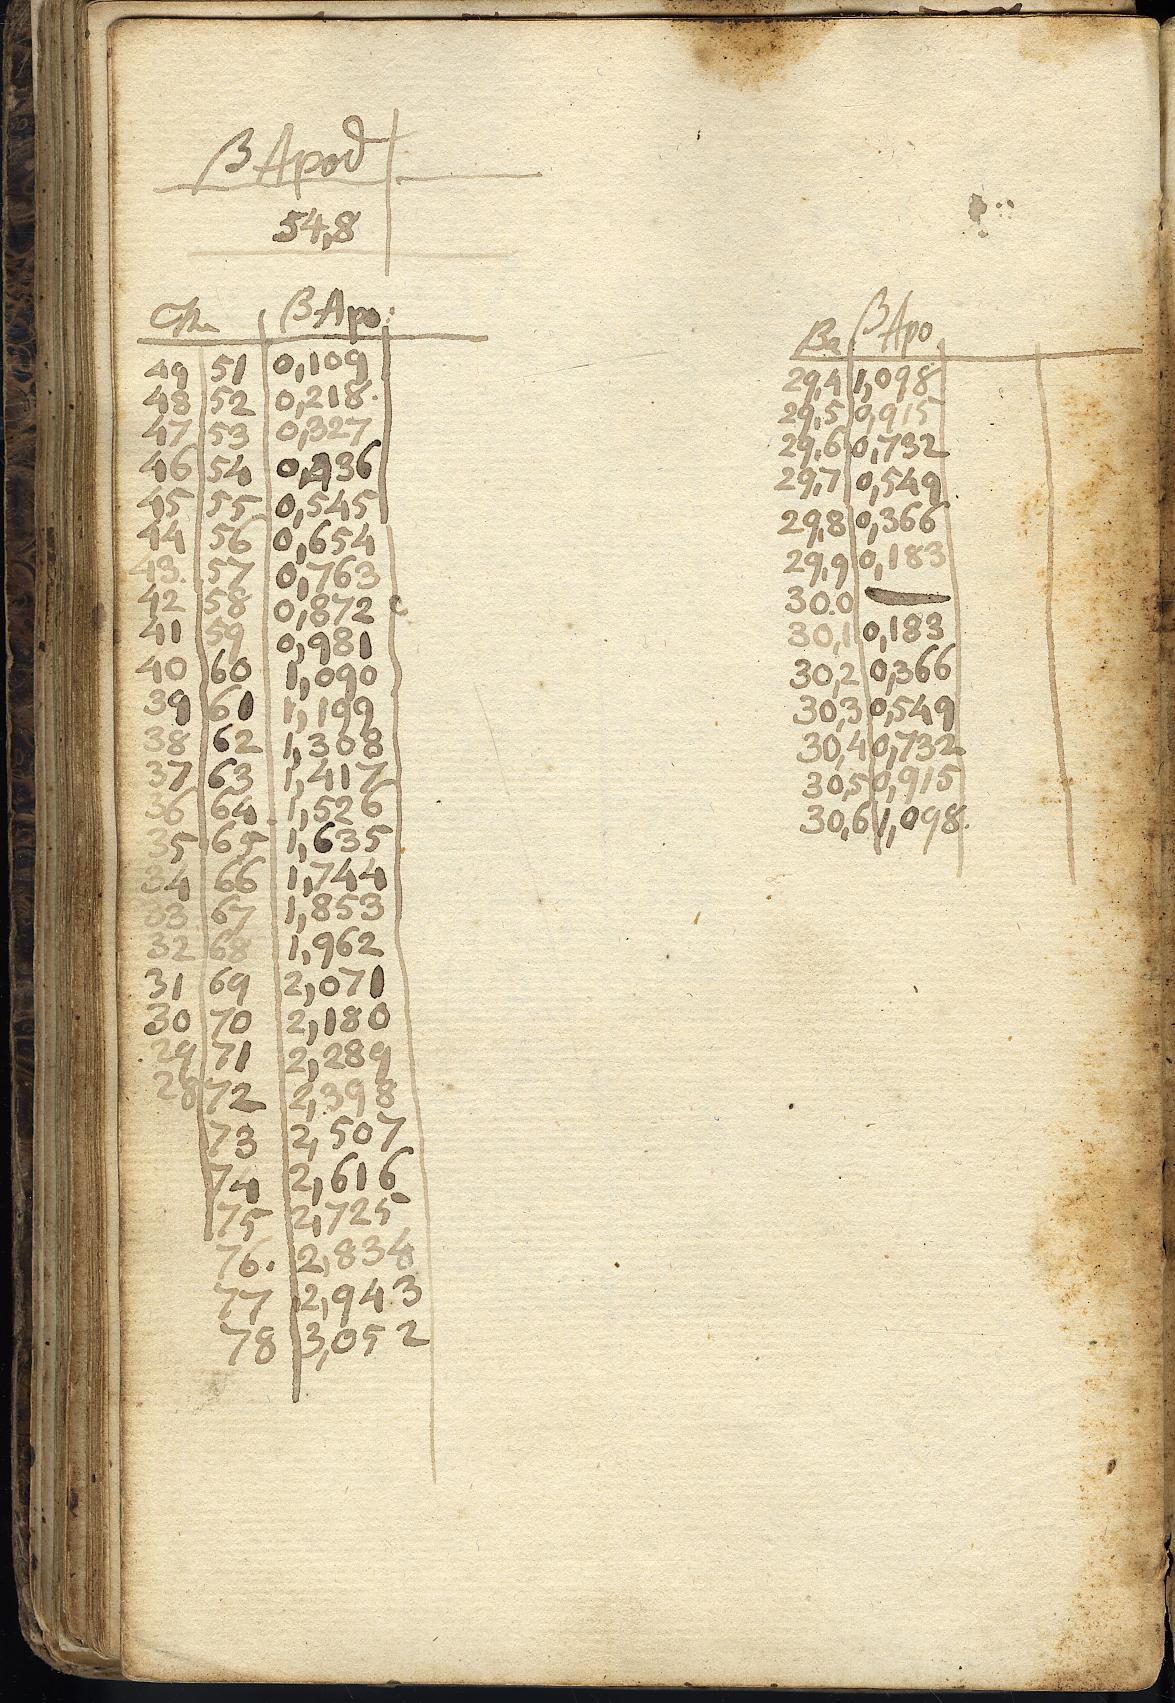 β Apod
54,8
The βApo:
49 51 0,109
48 52 0,218
47 53 0,327
46 54 0,436
45 55 0,545
44 56 0,654
43. 57 0,763
42 58 0,872
41 59 0,981
40 60 1,090
39 61 1,199
38 62 1,308
37 63 1,417
36 64 1,526
35 65 1,635
34 66 1,744
33 67 1,853
32 68 1,962
31 69 2,071
30 70 2,180
29 71 2,289
28 72 2,398
73 2,507
74 2,616
75 2,725
76. 2,834
77 2,943
78 3,052
Ba βApo
29,4 1,098
29,5 0,915
29,6 0,732
29,7 0,549
29,8 0,366
29,9 0,183
30.0 —
30,1 0,183
30,2 0,366
30,3 0,549
30,4 0,732
30,5 0,915
30,6 1,098.